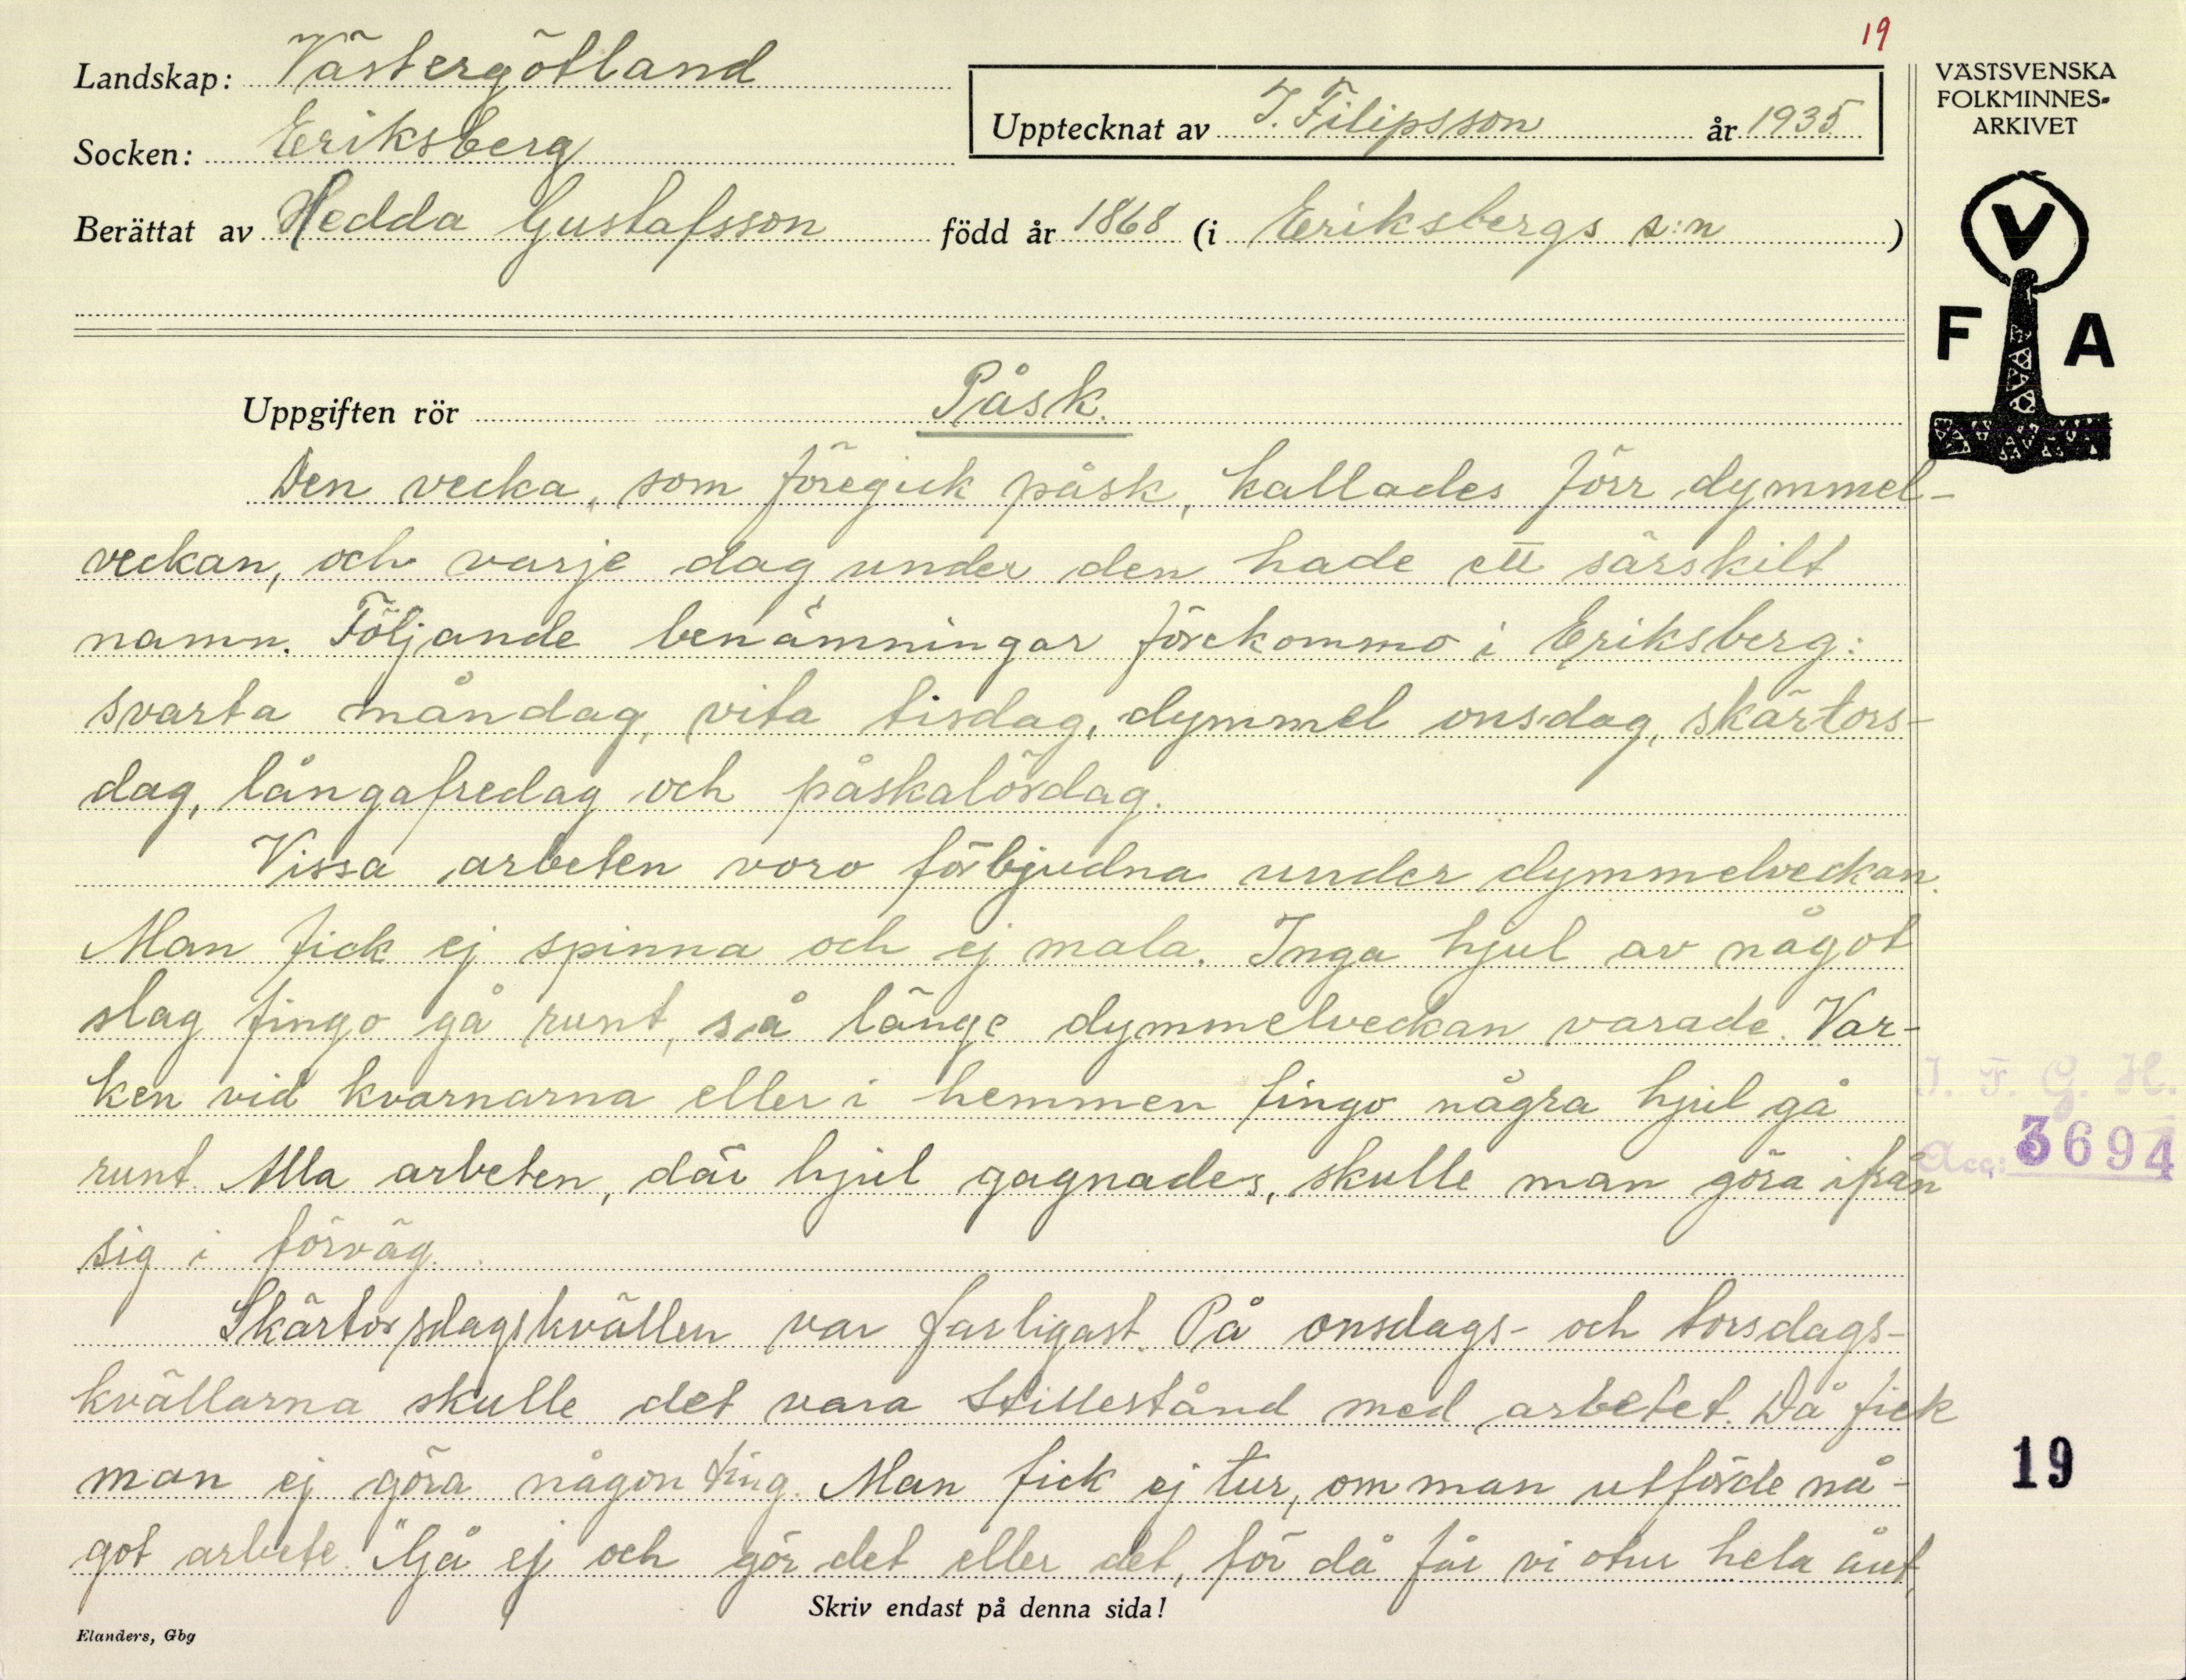 19
Landskap: Västergötland
Socken: Eriksberg
Upptecknat av J. Filipsson år 1935
Berättat av Hedda Gustafsson född år 1868 (i Eriksbergs s:n )
VÄSTSVENSKA
FOLKMINNES-
ARKIVET
V
F A
Uppgiften rör Påsk.
Den vecka, som föregick påsk, kallades förr dymmel-
veckan, och varje dag under den hade ett särskilt
namn. Följande benämningar förekommo i Eriksberg:
svarta måndag, vita tisdag, dymmel onsdag, skärtors-
dag, långafredag och påskalördag.
Vissa arbeten voro förbjudna under dymmelveckan.
Man fick ej spinna och ej mala. Inga hjul av något
slag fingo gå runt, så länge dymmelveckan varade. Var-
ken vid kvarnarna eller i hemmen fingo några hjul gå
runt. Alla arbeten, där hjul gagnades, skulle man göra ifrån
sig i förväg.
Skärtorsdagskvällen var farligast. På onsdags- och torsdags-
kvällarna skulle det vara stillestånd med arbetet. Då fick
man ej göra någon ting. Man fick ej tur, om man utförde nå-
got arbete. "Gå ej och gör det eller det, för då får vi otur hela året,
J. F. G. H.
Acc: 3694
19
Skriv endast på denna sida!
Elanders, Gbg